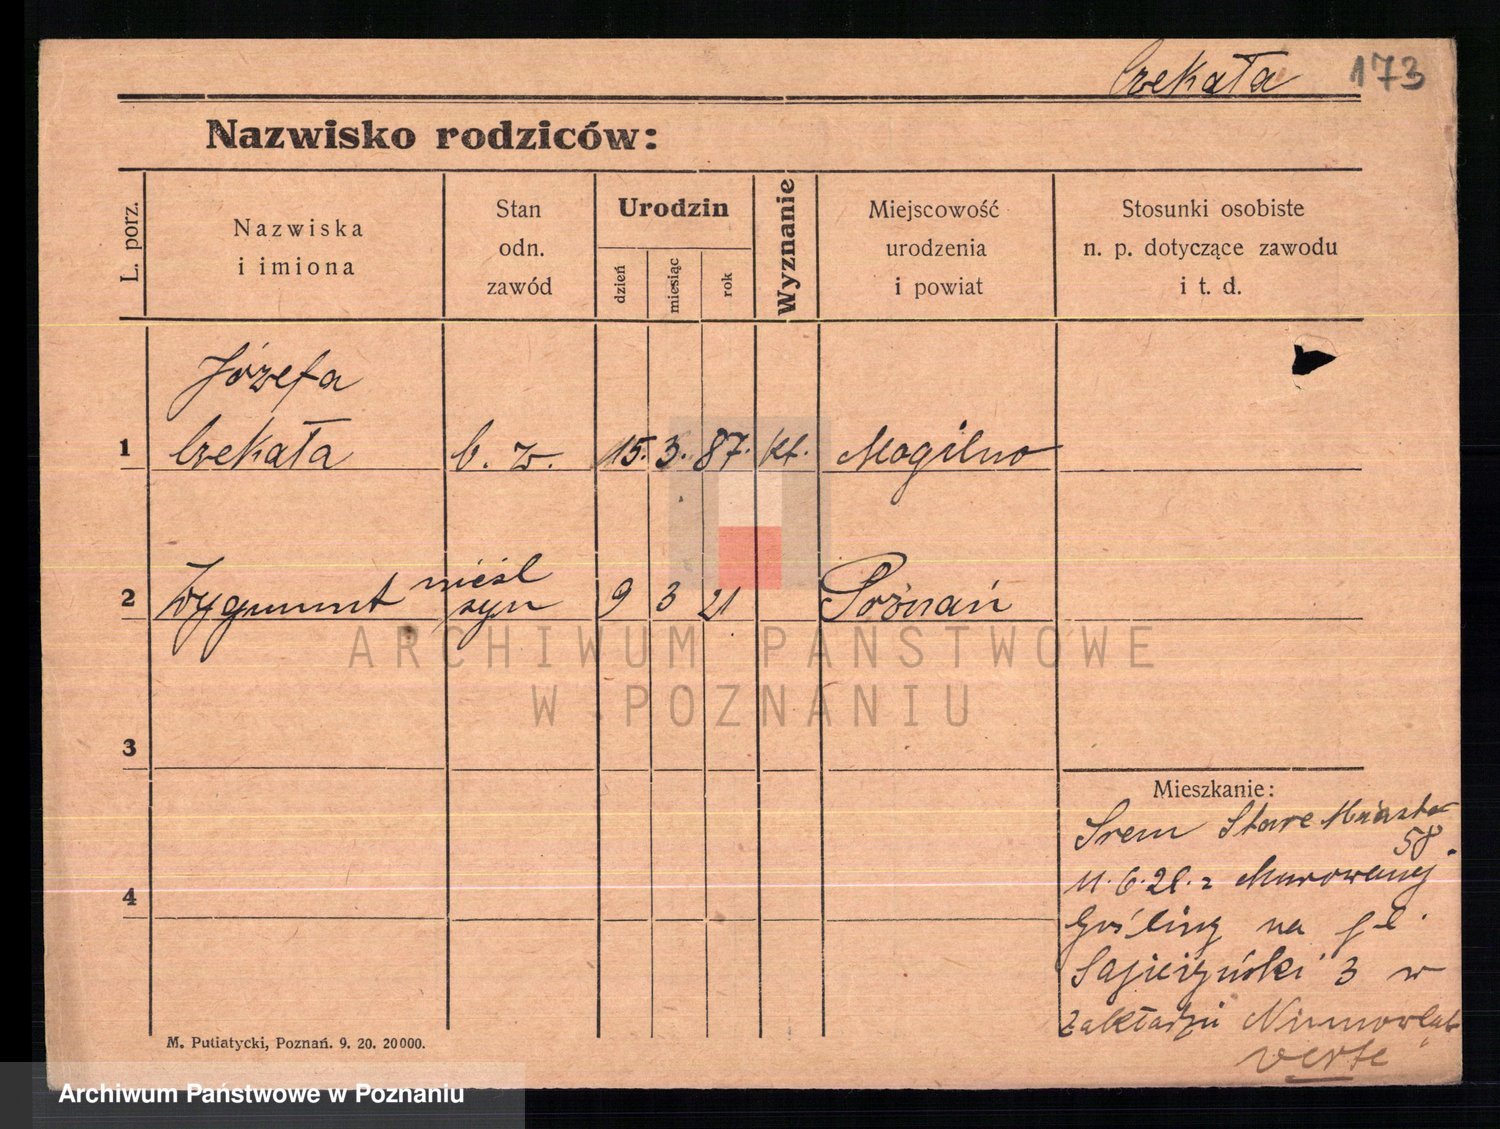 Czekała 173
Nazwisko rodziców:
L. porz.
Nazwiska
i imiona
Stan
odn.
zawód
Urodzin
dzień
miesiąc
rok
Wyznanie
Miejscowość
urodzenia
i powiat
Stosunki osobiste
n. p. dotyczące zawodu
i t. d.
Józefa
1 Czekała b. z. 15. 3. 87. kt. Mogilno
nieśl
2 Zygmunt syn 9 3 21 Poznań
ARCHIWUM PAŃSTWOWE
W POZNANIU
3
Mieszkanie:
Śrem Stare Miasto
58.
4
11. 6. 21. z Murowanej
Gośliny na pl.
3 w
zakładzie Niemowląt
verte
M. Putiatycki, Poznań. 9. 20. 20000.
Archiwum Państwowe w Poznaniu